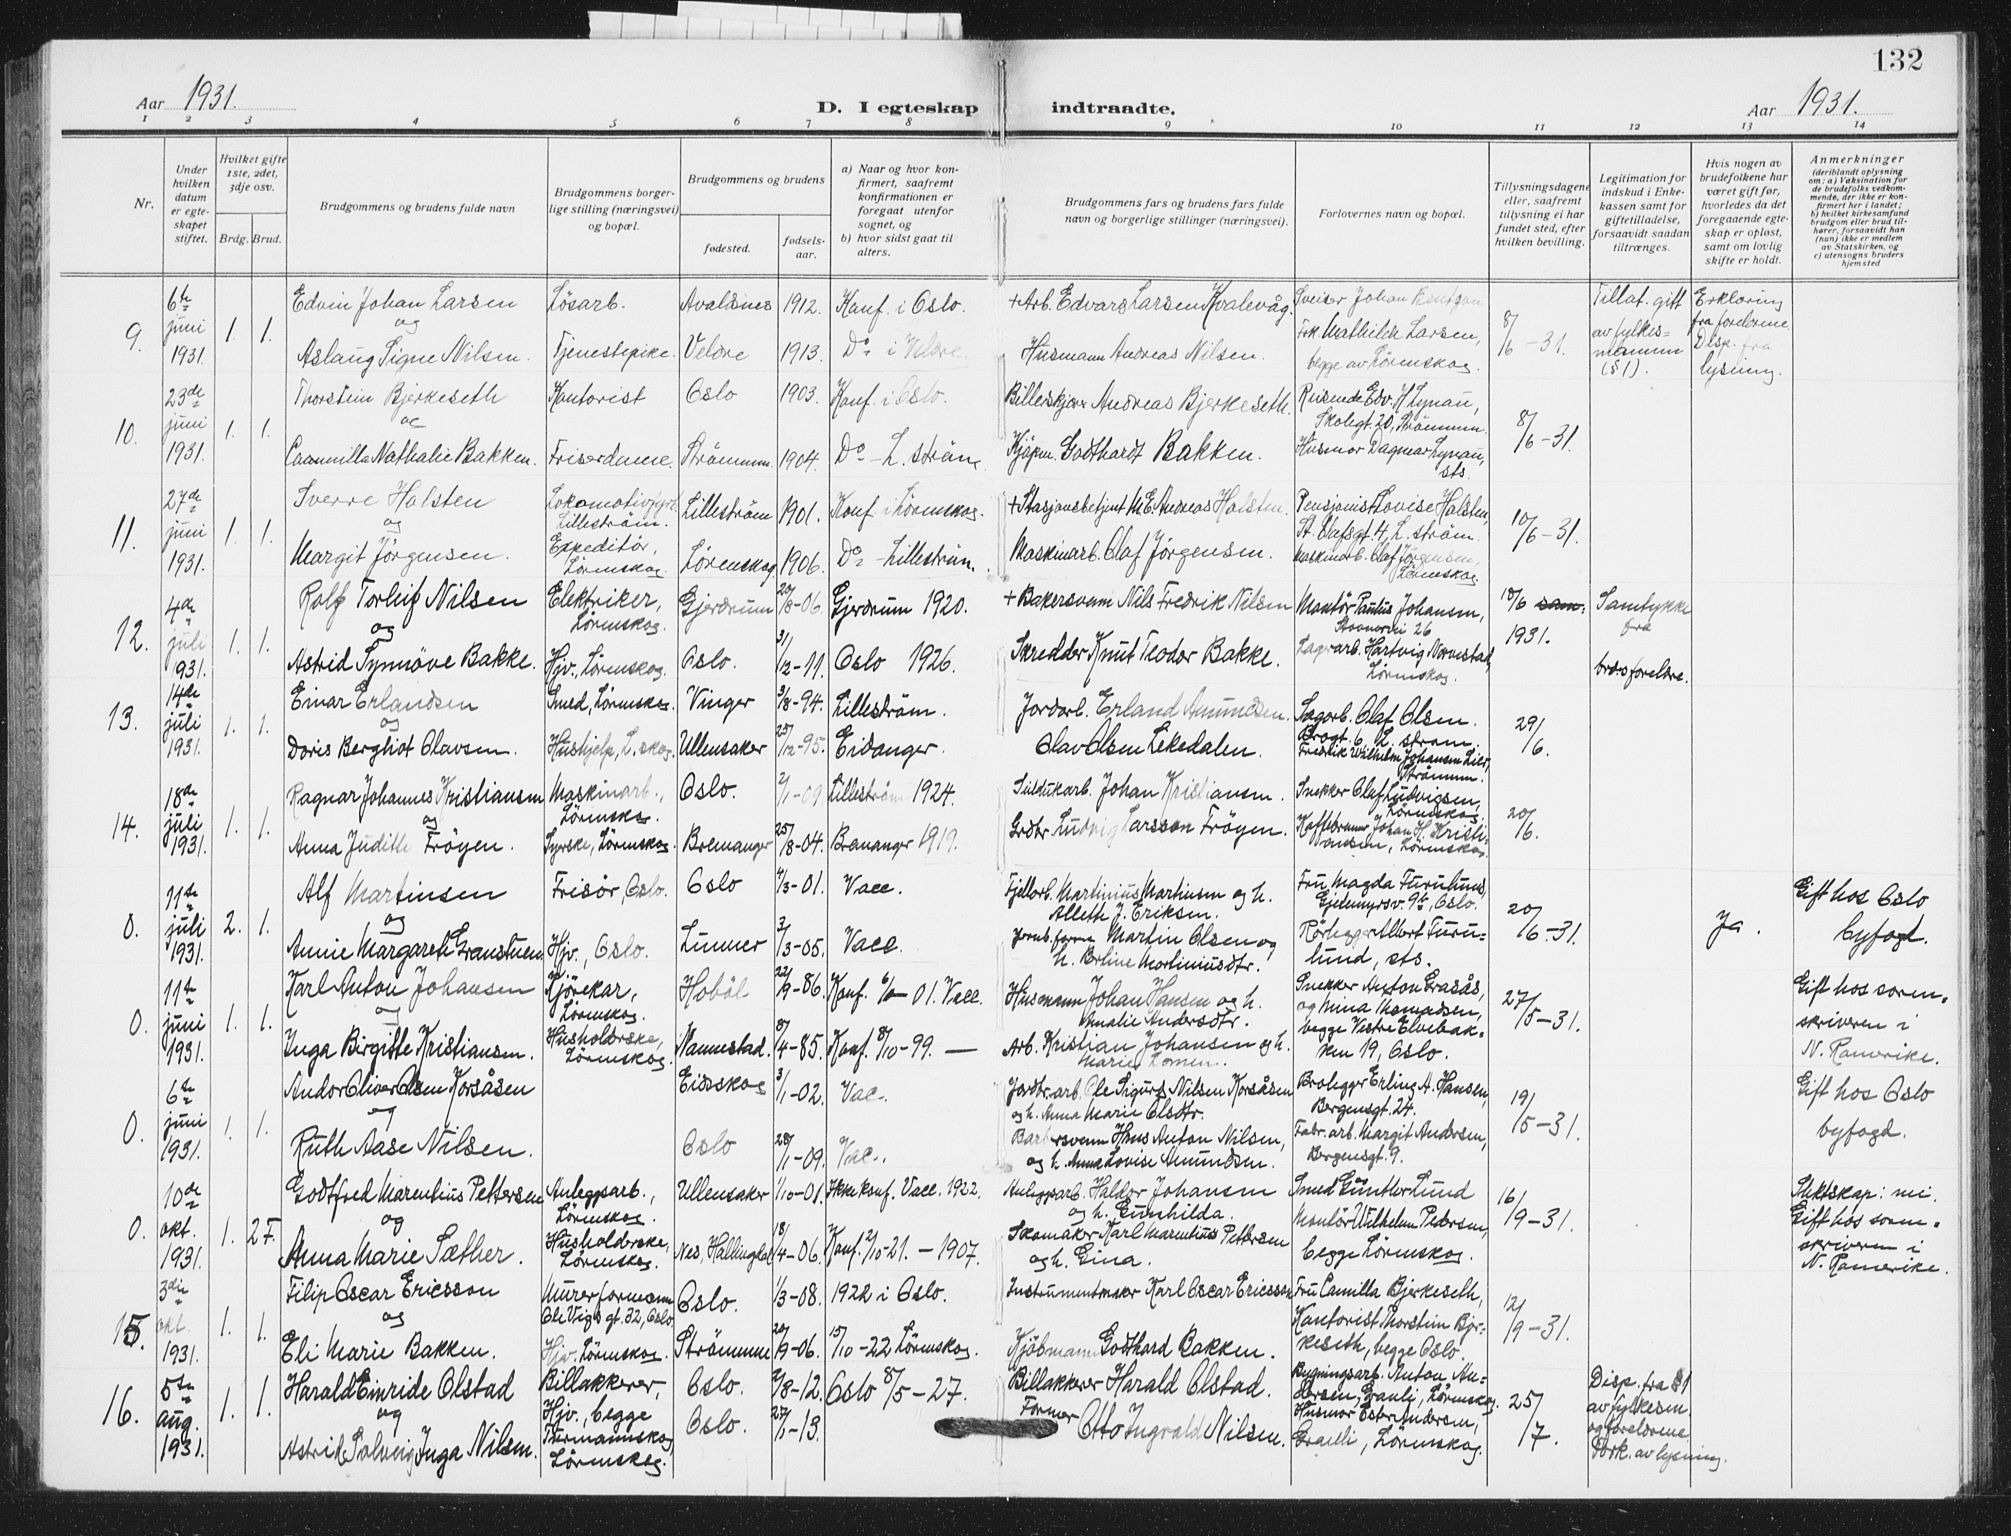 132
Aar 1931.
D. I egteskap indtraadte.
Aar 1931.
1 2 3 4 5 6 7 8 9 10 11 12 13 14
Nr.
Under hvilken datum er egteskapet stiftet.
Hvilket gifte 1ste, 2det, 3dje osv.
Brdg. Brud.
Brudgommens og brudens fulde navn
Brudgommens borgerlige stilling (næringsvei) og bopæl.
Brudgommens og brudens
fødested.
fødselsaar.
a) Naar og hvor konfirmert, saafremt konfirmationen er foregaat utenfor sognet, og
b) hvor sidst gaat til alters.
Brudgommens fars og brudens fars fulde navn og borgerlige stillinger (næringsvei).
Forlovernes navn og bopæl.
Tillysningsdagene eller, saafremt tillysning ei har fundet sted, efter hvilken bevilling.
Legitimation for indskud i Enkekassen samt for giftetilladelse, forsaavidt saadan tiltrænges.
Hvis nogen av brudefolkene har været gift før, hvorledes da det foregaaende egteskap er opløst, samt om lovlig skifte er holdt.
Anmerkninger (deriblandt oplysning om: a) Vaksination for de brudefolks vedkommende, der ikke er konfirmert her i landet; b) hvilket kirkesamfund brudgom eller brud tilhører, forsaavidt han (hun) ikke er medlem av Statskirken, og c) utensogns bruders hjemsted
9. 6te juni 1931. 1. 1.
Edvin Johan Larsen Løsarb. Avaldsnes 1912. Konf. i Oslo. + Arb. Edvard Larsen Kvalevåg. Sveiser Johan Bentzon
og
Aslaug Signe Nilsen. Tjenestepike. Veldre 1913. Do i Veldre. Husmann Andreas Nilsen. Frk. Mathilde Larsen, begge av Lørenskog.
8/6 - 31. Tillat. gift av fylkesmannen (§1). Erklæring fra foreldrene Disp. fra lysning.
10. 23de juni 1931. 1. 1.
Thorstein Bjerkeseth Kontorist Oslo 1903. Konf. i Oslo. Billedskjærer Andreas Bjerkeseth. Reisende Edv. H. Lynau, Skolegt. 20, Strømmen.
og
Caammilla Nathalie Bakken. Friserdame. Strømmen. 1904. Do - L. strøm. Kjøpm. Godthardt Bakken. Husmor Dagmar Lynau, sts
8/6 - 31.
11. 27de juni 1931. 1. 1.
Sverre Holsten Lokomotivfyrb. Lillestrøm. Lillestrøm 1901. Konf. i Lørenskog. + Stasjonsbetjent M. E. Andreas Holsten. Pensjonist Lovise Holsten, St. Olafsgt. 4, L. strøm.
og
Margit Jørgensen. Expeditør, Lørenskog Lørenskog 1906. Do - Lillestrøm. Maskinarb. Olaf Jørgensen. Maskinarb. Olaf Jørgensen, Lørenskog
10/6 - 31.
12. 4de juli 1931. 1. 1.
Rolf Torleif Nilsen Elektriker, Lørenskog. Gjerdrum 20/8-06. Gjerdrum 1920. + Bakersvenn Nils Fredrik Nilsen Montør Paulus Johansen, 26
og
Astrid Synnøve Bakke. Hjv., Lørenskog. Oslo. 3/12-11 Oslo 1926. Skredder Knut Teodor Bakke. Lagerarb. Hartvig Nornestad, Lørenskog.
10/6 1931. Samtykke fra foreldre.
13. 14de juli 1931. 1. 1.
Einar Erlandsen Smed, Lørenskog. Vinger 3/8-94. Lillestrøm. Jordarb. Erland Amundsen. Sagarb. Olaf Olsen. Brogt. 6, L. strøm.
og
Doris Bergliot Olavsen. Hushjelp, L. skog. Ullensaker 25/12-95. Eidanger. Olav Olsen Lekedalen. Fredrik Wilhelm Johansen Lier, Strømmen.
29/6.
14. 18de juli 1931. 1. 1.
Ragnar Johannes Kristiansen Maskinarb., Lørenskog. Oslo. 2/1-09 Lillestrøm 1924. Johan Kristiansen. Snekker Olaf Ludvigsen, Lørenskog
og
Anna Judithe Frøyen. Syerske, Lørenskog. Bremanger 25/8-04. Bremanger 1919. Grdbr. Ludvig Larsson Frøyen. Kaffebrenner Johan H. Kristiansen, Lørenskog.
20/6.
0. 11te juli 1931. 2. 1.
Alf Martinsen Frisør, Oslo. Oslo 4/3-01. Vacc. Fjellarb. Martinius Martinsen og h. Alleth J. Eriksen. Fru Magda Furulund, 9b, Oslo.
og
Annie Margarete Granstuen Hjv., Oslo. Lunner 2/3-05. Vacc. Martin Olsen og h. Berline Martiniusdtr. Rørlegger Albert Furulund, sts.
20/6-31. Ja. Gift hos Oslo byfogd.
0. 11te juni 1931. 1. 1.
Karl Anton Johansen Kjørekar, Lørenskog. Hobøl 22/9-86. Konf. 6/10-01. Vacc. Husmann Johan Hansen og h. Amalie Andersdtr. Snekker Anton Grasås, og Mina Thomadsen,
og
Inga Birgitte Kristiansen. Husholderske, Lørenskog Nannestad. 8/4-85. Konf. 8/10-99. — Arb. Kristian Johansen og h. Marie Lomen. begge Vestre Elvebakken 19, Oslo.
27/5-31. Gift hos sorenskriveren i N. Romerike.
0. 6te juni 1931. 1. 1.
Andor Oliver Olsen Korsåsen Eidsskog 3/1-02. Vac. Jordbr.arb. Ole Sigurd Nilsen Korsåsen og h. Anna Marie Olsdtr. Brolegger Erling A. Hansen, Bergensgt. 24.
og
Ruth Aase Nilsen. Oslo 28/1-09. Vac. Barbersvenn Hans Anton Nilsen, og h. Anna Lovise Amundsen. Fabr.arb. Margit Andersen, Bergensgt. 9.
19/5-31. Gift hos Oslo byfogd.
0. 10de okt. 1931. 1. 2 F.
Godtfred Marentius Pettersen Anleggsarb., Lørenskog. Ullensaker 1/10-01. Ikke konf. Vacc. 1922. Anleggsarb. Haldor Johansen og h. Gunhilda. Smed Günther Lund
og
Anna Marie Sæther. Husholderske, Lørenskog. Nes, Hallingdal 18/4-06. Konf. 2/10-21. - 1907. Skomaker Karl Marentius Pettersen og h. Gina. Montør Wilhelm Pedersen, begge Lørenskog.
16/9-31. Slektskap: nei. Gift hos sorenskriveren i N. Romerike.
15. 3die okt. 1931. 1. 1.
Filip Oscar Ericsson Murerformann Ole Vigs gt. 32, Oslo Oslo. 1/3-08. 1922 i Oslo. Instrumentmaker Karl Oscar Ericsson Fru Camilla Bjerkeseth,
og
Eli Marie Bakken. Hjv. Lørenskog Strømmen 20/9-06. 15/10-22 Lørenskog. Kjøbmann Godthard Bakken. Kontorist Thorstein Bjerkeseth, begge Oslo.
12/9-31.
16. 5te aug. 1931. 1. 1.
Harald Einride Olstad Billakkerer, Oslo. 2/8-12. Oslo 8/5-27. Billakkerer Harald Olstad. Bygningsarb. Anton Andersen, Grauli, Lørenskog.
og
Astrid Solveig Inga Nilsen. Hjv., begge Thurmannskog, Lørenskog. Oslo. 27/1-13. Former Otto Ingvald Nilsen. Husmor Ester Andersen, Lørenskog.
25/7. Disp. fra §1 av fylkesm. og foreldrene av lysning.